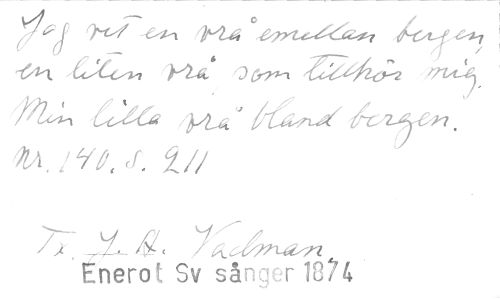 Jag vet en vrå emellan bergen,
en liten vrå som tillhör mig.
Min lilla vrå bland bergen.
Nr. 140. s. 211
Tx. J. A. Wadman.
Enerot Sv sånger 1874